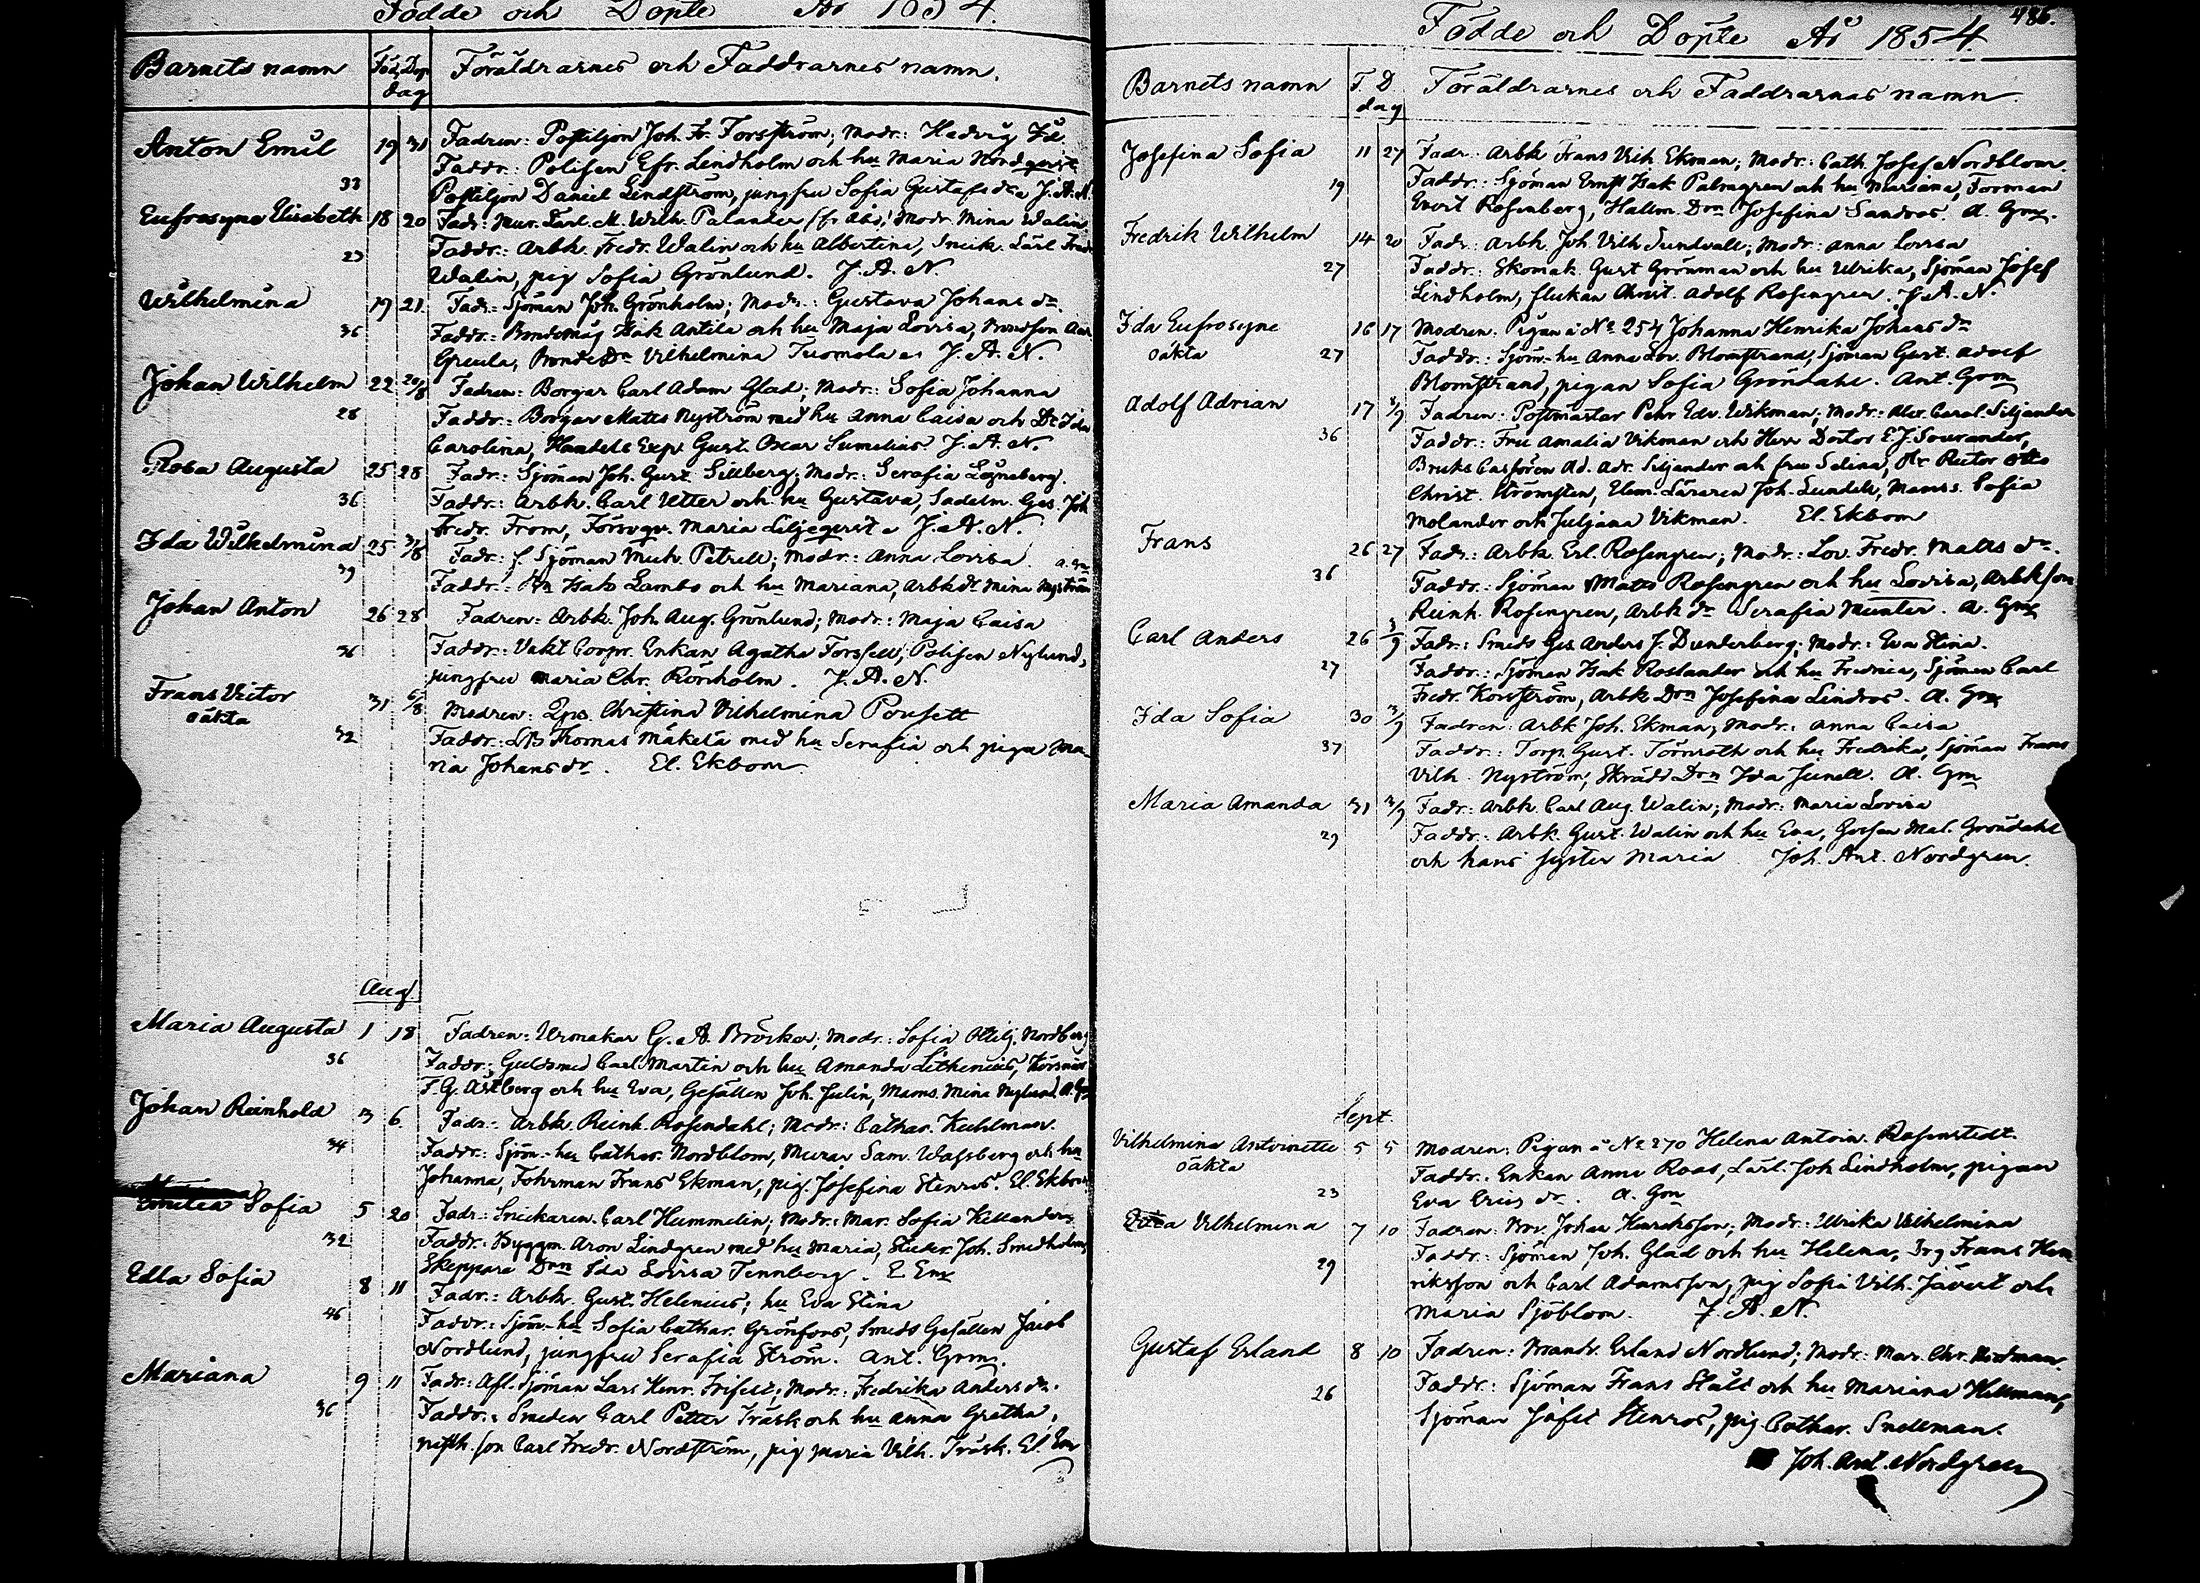 Födde och Döpte År 1854.
Barnets namn Föd. Döp. dag Föräldrarnes och Faddrarnes namn.
Anton Emil 19 31 Fadren: Postiljon Joh. Fr. Forsström; Modr.: Hedvig
33 Faddr.: Polisen Efr. Lindholm och hu Maria Nordqvist
Postiljon Daniel Lindström, jungfru Sofia Gustafs dr J. A. N.
Eufrosyne Elisabeth 18 20 Fadr: Mur. Lärl. M. Wilh. Palander (fr. Åbo) Modr. Mina Walin
23 Faddr.: Arbk. Fredr. Walin och hu Albertina, Snick. Lärl Fredr
Walin, pig Sofia Grönlund. J. A. N.
Wilhelmina 19 21. Fadr.: Sjöman Joh. Grönholm; Modr.: Gustava Johans dr
36 Faddr.: Bondemåg Isak Antila och hu Maja Lovisa, Bondson
Greula, Bonde Dn Vilhelmina Tuomola J. A. N.
Johan Wilhelm 22 20/8 Fadren: Borgar Carl Adam Glad; Modr.: Sofia Johanna
28 Faddr.: Borgar Matts Nyström med hu Anna Caisa och Dr Ida
Carolina, Handels Exp. Gust. Oscar Sumelius. J. A. N.
Rosa Augusta 25 28 Fadr.: Sjöman Joh. Gust. Sillberg; Modr.: Serafia Lagneberg.
36 Faddr.: Arbk. Carl Utter och hu Gustava, Sadelm. Ges. Joh
Fredr. From, Maria Liljeqvist J. A. N.
Ida Wilhelmina 25 31/8 Fadr.: f. Sjöman Mich. Petrell; Modr.: Anna Lovisa. A. Gm
39 Faddr.: Isak Lambo och hu Mariana, Arbk dr Mina Nyström
Johan Anton 26 28 Fadren: Arbk. Joh. Aug. Grönlund; Modr.: Maja Caisa
36 Faddr.: Vakt Corpr. Enkan Agatha Forssell, Polisen Nylund,
jungfru Maria Chr. Rönholm. J. A. N.
Frans Victor 31 6/8 Modren: Qps. Christina Vilhelmina Pousett
oäkta
32 Faddr.: Thomas Mäkelä med hu Serafia och pigan Ma-
ria Johans dr. El. Ekbom
Aug.
Maria Augusta 1 18 Fadren: Urmakar G. A. Bröcker; Modr.: Sofia Ottilj. Nordberg
36 Faddr.: Guldsmed Carl Martin och hu Amanda Lithenius, Körsnär
F. G. Åstberg och hu Eva, Gesällen Joh. Julin, Mams. Mina Nylund. A. Gm
Johan Reinhold 3 6. Fadr.: Arbk. Reink. Rosendahl; Modr.: Cathar. Kuhlman.
34 Faddr.: Sjöm.-hu Cathar. Nordblom, Murar Sam. Wahsberg och hu
Johanna, Fohrman Frans Ekman, pig. Josefina Stenros. El. Ekbom
Emelia Sofia 5 20 Fadr.: Snickaren Carl Hummelin; Modr.: Mar. Sofia Killander
32 Faddr.: Byggm. Aron Lindgren med hu Maria, Studer. Joh. Smedholm,
Skeppare Dn Ida Lovisa Tennberg.
Edla Sofia 8 11 Fadr.: Arbk. Gust. Helenius; hu Eva Stina
46 Faddr.: Sjöm.-hu Sofia Cathar. Grönfors, Smeds Gesällen Jacob
Nordlund, jungfru Serafia Ström. Ant. Grm.
Mariana 9 11 Fadr.: Afl. Sjöman Lars Henr. Frifelt; Modr.: Fredrika Anders dr.
36 Faddr.: Smeden Carl Petter Träsk och hu Anna Gretha,
son Carl Fredr. Nordström, pig Maria Vilh. Träsk. El. Em
486.
Födde och Döpte År 1854
Barnets namn F. D. dag Föräldrarnes och Faddrarnas namn.
Josefina Sofia 11 27 Fadr.: Arbk Frans Vilh Ekman; Modr.: Cath. Josef. Nordblom.
19 Faddr.: Sjöman Ernst Isak Palmgren och hu Mariana, Forman
Evert Rosenberg, Hallm. Drn Josefina Sandros. A. Gm.
Fredrik Wilhelm 14 20 Fadr.: Arbk. Joh Vilh Sundvall; Modr.: Anna Lovisa
27 Faddr.: Skomak Gust Grönman och hu Ulrika, Sjöman Josef
Lindholm, flickan Christ. Adolf Rosengren. J. A. N.
Ida Eufrosyne 16 17 Modren: Pigan i No 254 Johanna Henrika Johans dr
oäkta 27 Faddr.: Sjöm.-hu Anna Lov. Blomstrand, Sjöman Gust. Adolf
Blomstrand, pigan Sofia Gröndahl. Ant. Grm
Adolf Adrian 17 3/9 Fadren: Postmäster Pehr Edv. Wikman; Modr.: Alex. Carol. Siljander
36 Faddr.: Fru Amalia Vikman och Herr Doctor E. J. Sourander,
Bruks Casören Ad. Adr. Siljander och fru Selina, Hr Rector Otto
Christ. Strömsten, Elem. Läraren Joh. Lundell, Mams. Sofia
Molander och Juljana Vikman. El. Ekbom
Frans 26 27 Fadr.: Arbk. Erl. Rosengren; Modr.: Lov. Fredr. Matts dr.
36 Faddr.: Sjöman Matts Rosengren och hu Lovisa, Arbkson
Reink. Rosengren, Arbk dr Serafia Munter. A. Gm
Carl Anders 26 3/9 Fadr.: Smeds Ges. Anders J. Dunderberg; Modr.: Eva Stina.
27 Faddr.: Sjöman Isak Roslander och hu Fredrica, Sjöman Carl
Fredr. Korsström, Arbk Drn Josefina Lindros. A. Gm
Ida Sofia 30 3/9 Fadren: Arbk Joh. Ekman, Modr.: Anna Caisa
37 Faddr.: Torp. Gust. Törnroth och hu Fredrika, Sjöman Frans
Vilh. Nyström, Skrädd Drn Ida Junell. A. Gm
Maria Amanda 31 3/9 Fadr.: Arbk. Carl Aug. Walin; Modr.: Maria Lovisa
29 Faddr.: Arbk. Gust. Walin och hu Eva, Gossen Mal. Gröndahl
och hans syster Maria Joh. Ant. Nordgren.
Sept.
Vilhelmina Antoinette 5 5 Modren: Pigan i No 270 Helena Antoin. Rosenstedt.
oäkta Faddr.: Enkan Anna Roos, Lärl. Joh Lindholm, pigan
23 Eva Erics dr. A. Gm
Vilhelmina 7 10 Fadren: Johan Henricksson; Modr.: Ulrika Vilhelmina
29 Faddr.: Sjöman Joh. Glad och hu Helena, Frans Hen
riksson och Carl Adamsson, pig Sofia Vilh. Jävert och
Maria Sjöblom. J. A. N.
Gustaf Erland 8 10 Fadren: Erland Nordlund; Modr.: Mar. Chr. Nordman
26 Faddr.: Sjöman Frans Stålt och hu Mariana Hellman,
Sjöman Josef Stenros, pig. Cathar. Snellman.
Joh. Ant. Nordgren